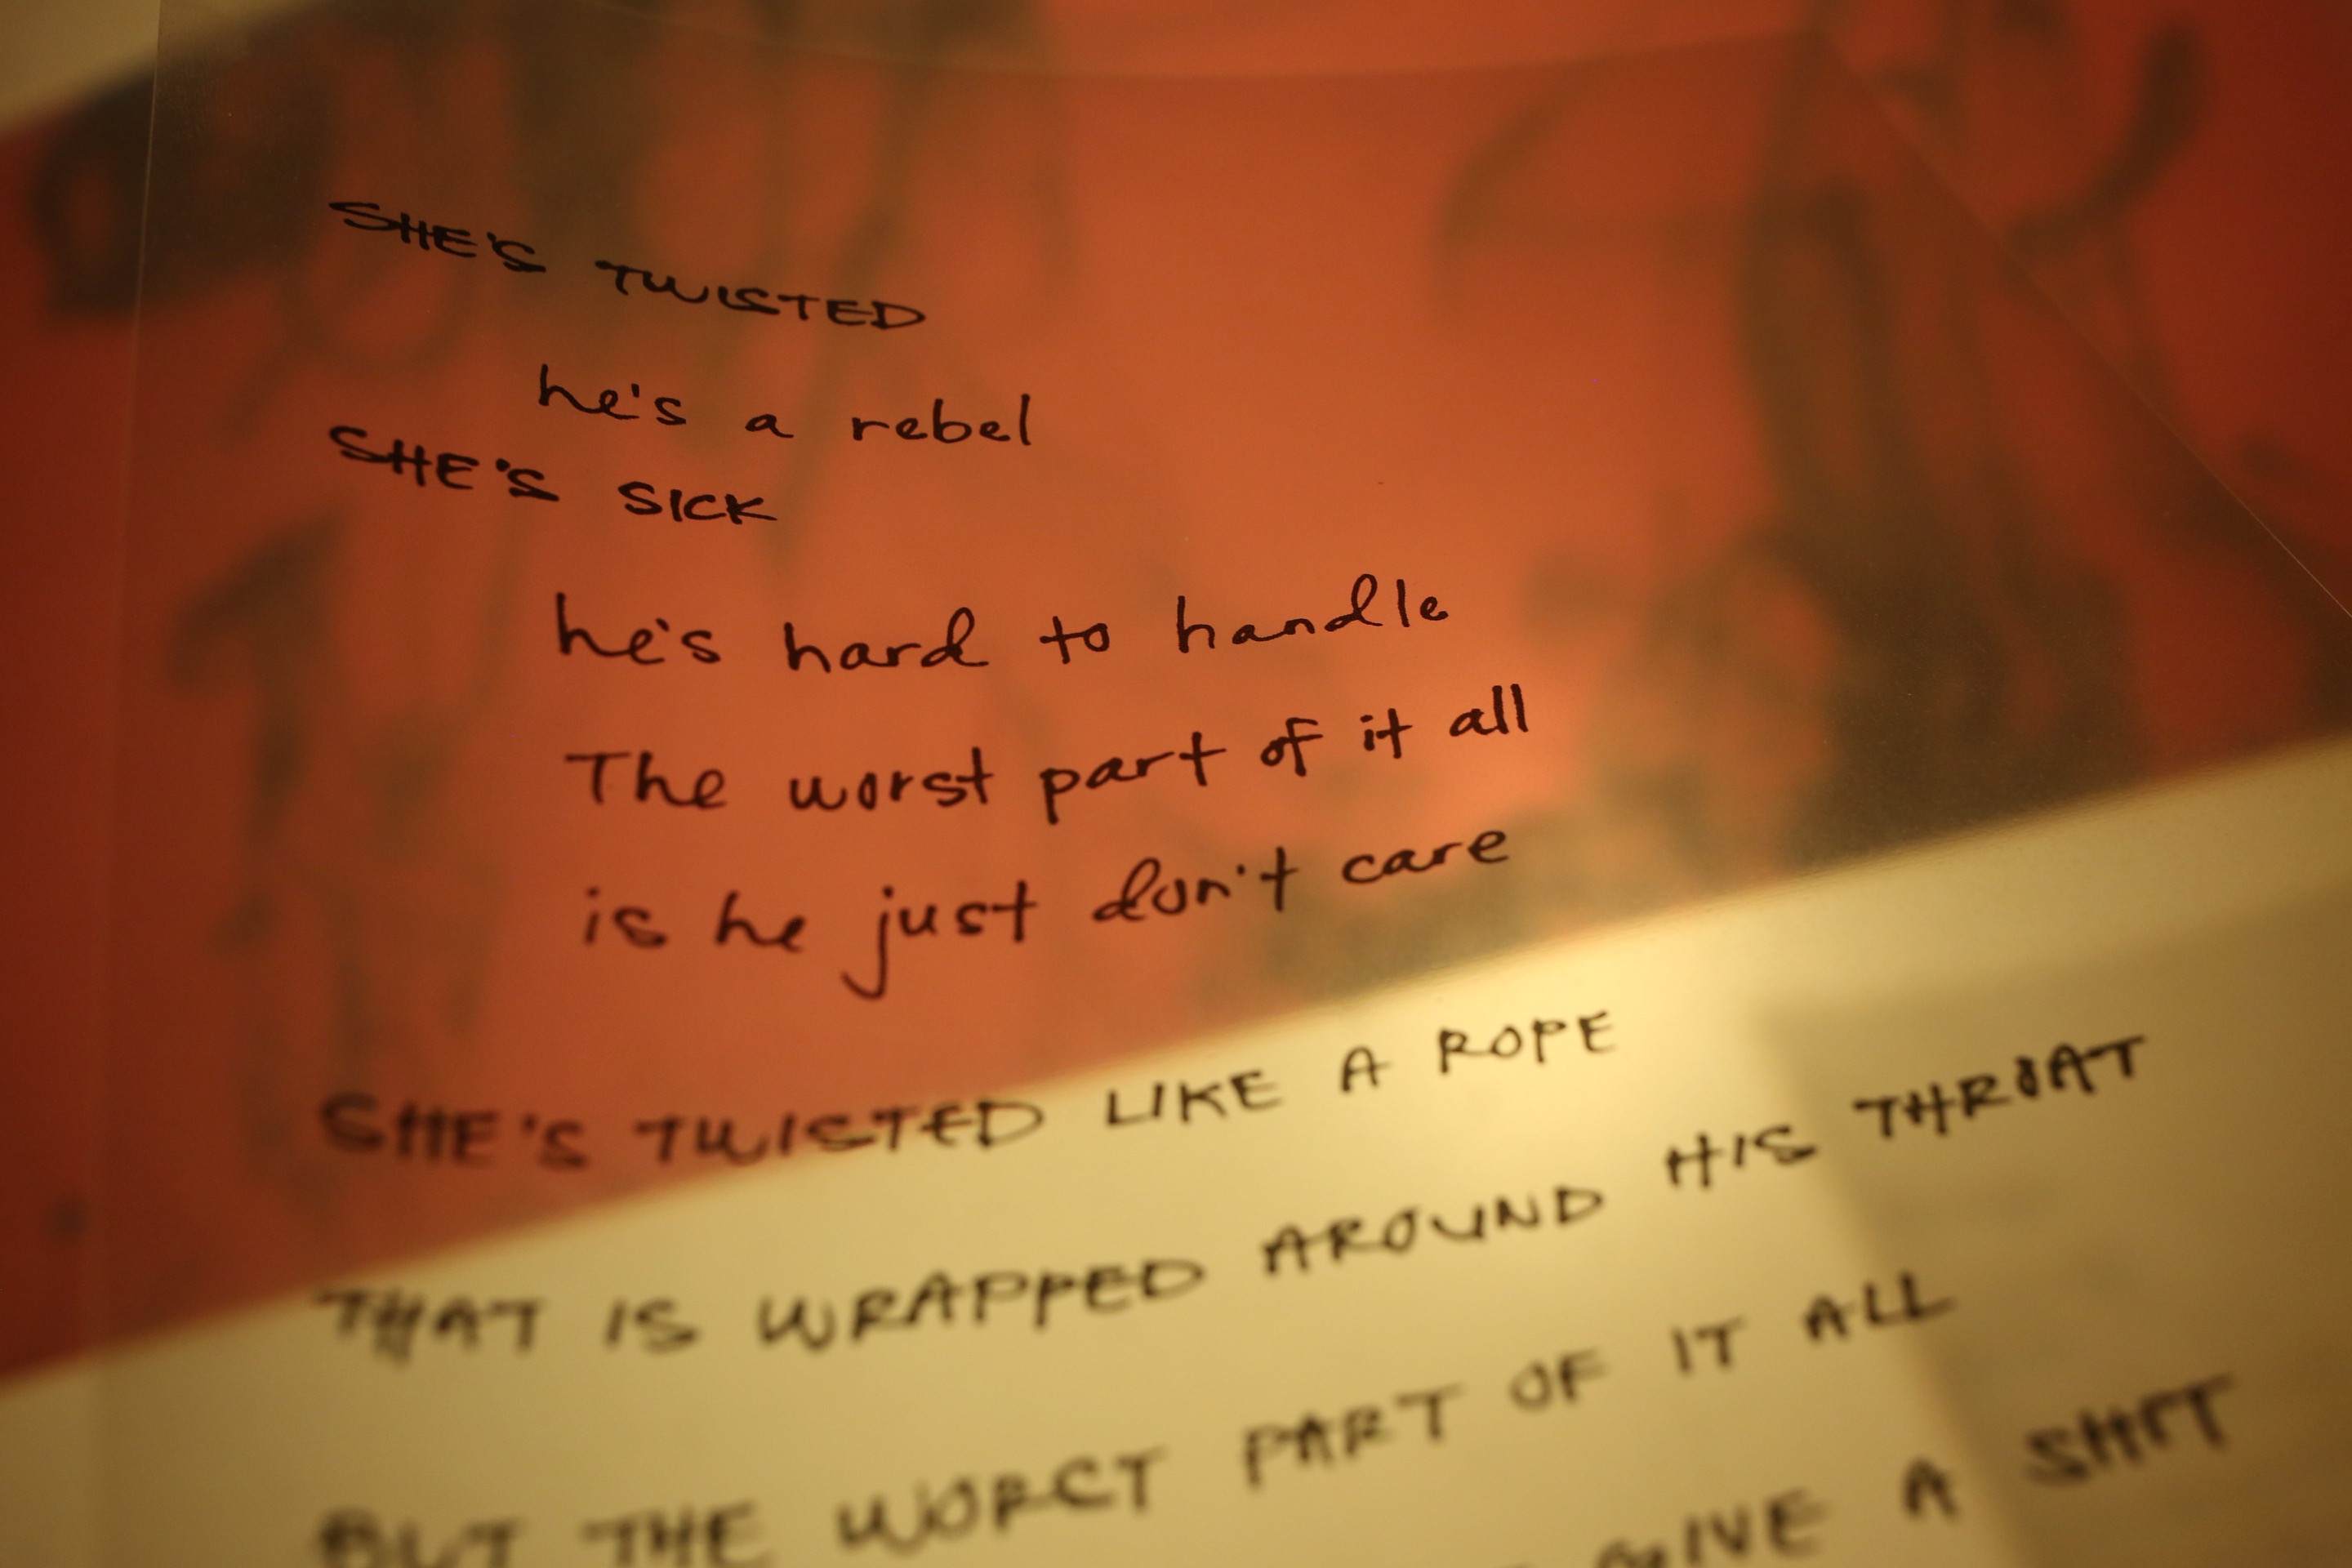 SHE'S TWISTED
he's a rebel
SHE'S SICK
he's hard to handle
The worst part of it all
is he just don't care
SHE'S TWISTED LIKE A ROPE
THAT IS WRAPPED AROUND HIS THROAT
BUT THE WORST PART OF IT ALL
GIVE A SHIT